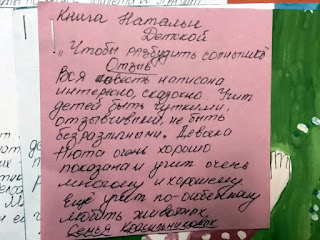 Книга Натальи
Детской
„Чтобы разбудить солнышко"
Отзыв
Вся повесть написана
интересно, сказочно. Учит
детей быть чуткими,
отзывчивыми, не быть
безразличными. Девочка
Нюта очень хорошо
показана и учит очень
многому и хорошему
Ещё учит по-особенному
любить животных
Семья Красильниковых